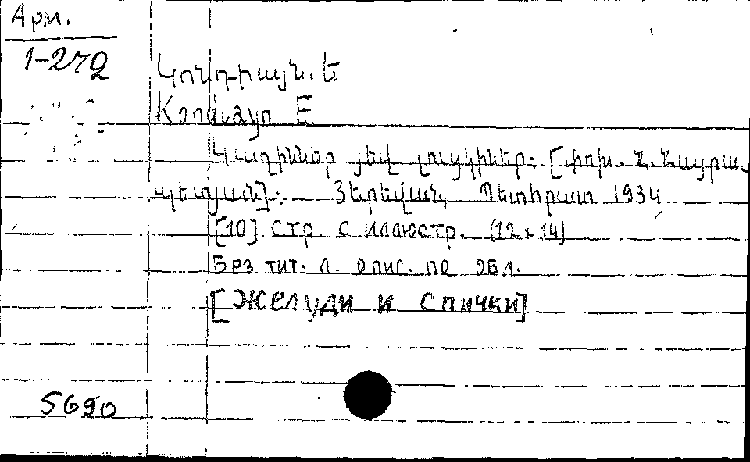 Арм.
1-272
Կոնդրիայն. Ե
Е
Կաղիններ յեվ լուցկիներ: [փոխ. Հ. Հայրա-
պետյան]: — Յերեվան, Պետհրատ 1934
[10] стр. с иллюстр. (12×14)
Без тит. л. опис. по обл.
[Желуди и спички]
5690